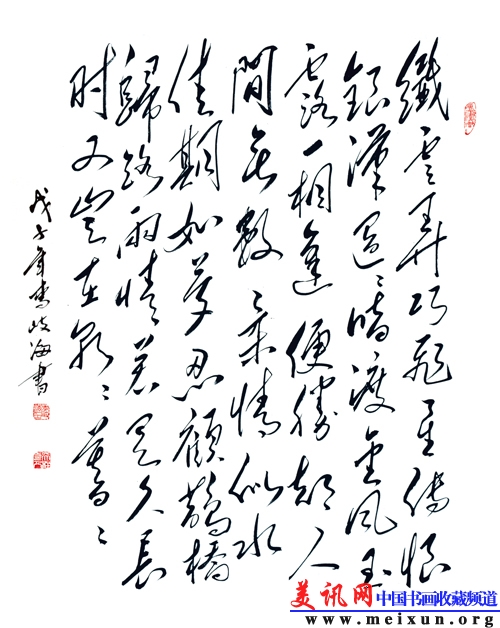 纖雲弄巧飛星傳恨
銀漢迢〻暗渡金風玉
露一相逢便勝却人
間無數柔情似水
佳期如夢忍顧鵲橋
歸路兩情若是久長
时又豈在朝〻暮〻
戊子年岐海書
美讯网中国书画收藏频道
www.meixun.org